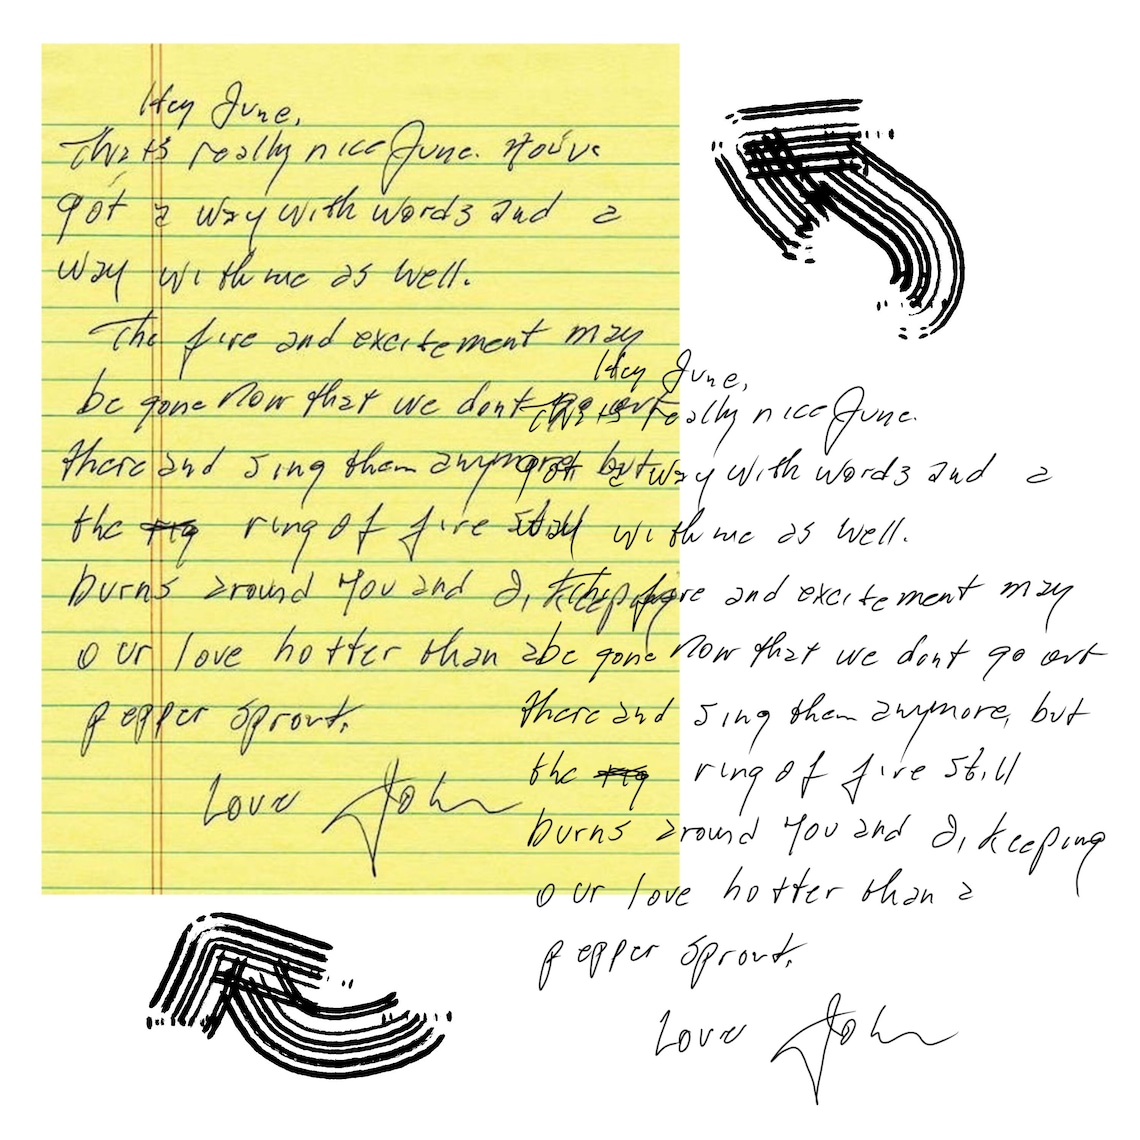 Hey June,
That's really nice June. You've
got a way with words and a
way with me as well.
The fire and excitement may
be gone now that we don't go out
there and sing them anymore, but
the ring of fire still
burns around you and I, keeping
our love hotter than a
pepper sprout.
Love John
Hey June,
That's really nice June.
got a way with words and a
way with me as well.
The fire and excitement may
be gone now that we dont go out
there and sing them anymore, but
the ring of fire still
burns around you and I, keeping
our love hotter than a
pepper sprout.
Love John